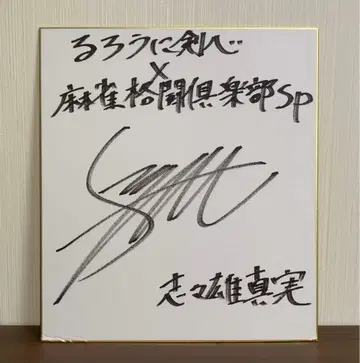 るろうに剣心
×
麻雀格闘倶楽部sp
志々雄真実